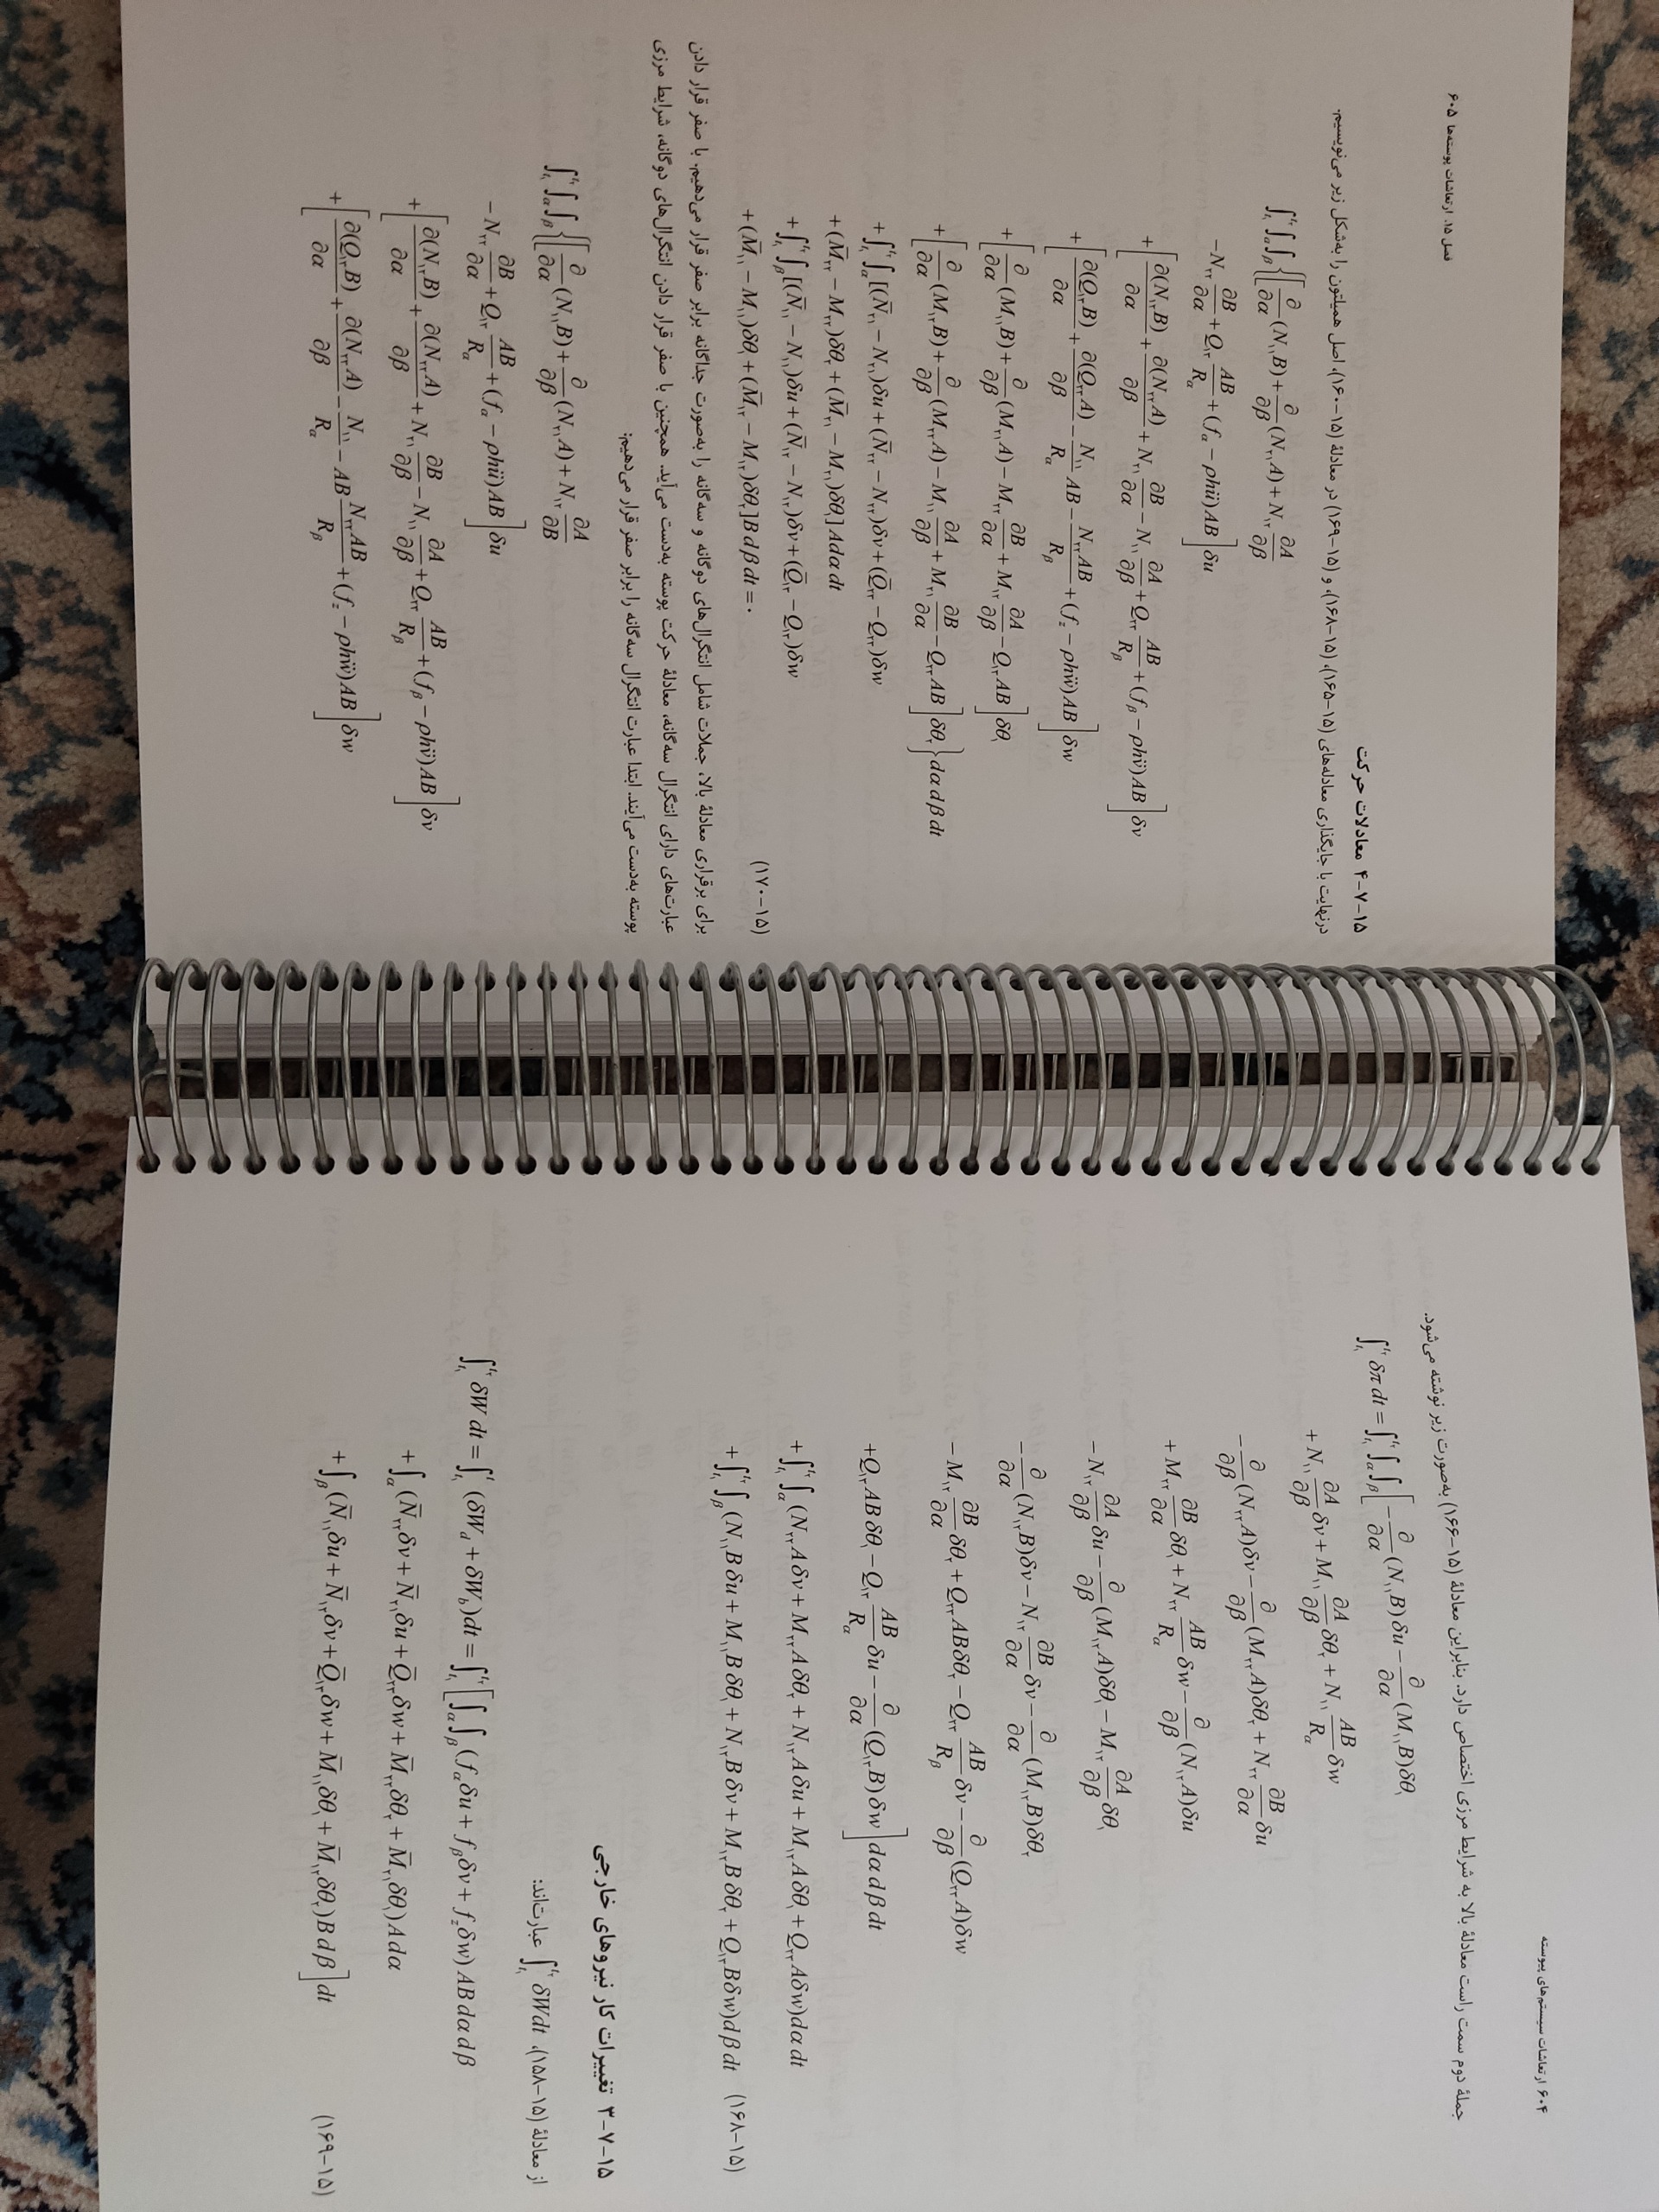 ۶۰۴ ارتعاشات سیستم‌های پیوسته
جملهٔ دوم سمت راست معادلهٔ بالا به شرایط مرزی اختصاص دارد. بنابراین معادلهٔ (۱۵-۱۶۶) به‌صورت زیر نوشته می‌شود.
∫_{t₁}^{t₂} δπ dt = ∫_{t₁}^{t₂} ∫_α ∫_β [ −∂/∂α (N₁₁B)δu − ∂/∂α (M₁₁B)δθ₁
+ N₁₁ ∂A/∂β δv + M₁₁ ∂A/∂β δθ₂ + N₁₁ AB/R_α δw
− ∂/∂β (N₂₂A)δv − ∂/∂β (M₂₂A)δθ₂ + N₂₂ ∂B/∂α δu
+ M₂₂ ∂B/∂α δθ₁ + N₂₂ AB/R_α δw − ∂/∂β (N₁₂A)δu
− N₁₂ ∂A/∂β δu − ∂/∂β (M₁₂A)δθ₁ − M₁₂ ∂A/∂β δθ₁
− ∂/∂α (N₁₂B)δv − N₁₂ ∂B/∂α δv − ∂/∂α (M₁₂B)δθ₂
− M₁₂ ∂B/∂α δθ₂ + Q₂₃ABδθ₂ − Q₂₃ AB/R_β δv − ∂/∂β (Q₂₃A)δw
+Q₁₃ABδθ₁ − Q₁₃ AB/R_α δu − ∂/∂α (Q₁₃B)δw ] dα dβ dt
+ ∫_{t₁}^{t₂} ∫_α (N₂₂Aδv + M₂₂Aδθ₂ + N₁₂Aδu + M₁₂Aδθ₁ + Q₂₃Aδw)dα dt
+ ∫_{t₁}^{t₂} ∫_β (N₁₁Bδu + M₁₁Bδθ₁ + N₁₂Bδv + M₁₂Bδθ₂ + Q₁₃Bδw)dβ dt (۱۵-۱۶۸)
۱۵-۷-۳ تغییرات کار نیروهای خارجی
از معادلهٔ (۱۵-۱۵۸)، ∫_{t₁}^{t₂} δWdt عبارت‌اند:
∫_{t₁}^{t₂} δW dt = ∫_{t₁}^{t} (δW_d + δW_b)dt = ∫_{t₁}^{t₂} [ ∫_α ∫_β (f_αδu + f_βδv + f_zδw) AB dα dβ
+ ∫_α (N̄₂₂δv + N̄₂₁δu + Q̄₂₃δw + M̄₂₂δθ₂ + M̄₂₁δθ₁) A dα
+ ∫_β (N̄₁₁δu + N̄₁₂δv + Q̄₁₃δw + M̄₁₁δθ₁ + M̄₁₂δθ₂) B dβ ] dt (۱۵-۱۶۹)
فصل ۱۵. ارتعاشات پوسته‌ها ۶۰۵
۱۵-۷-۴ معادلات حرکت
درنهایت با جایگذاری معادله‌های (۱۵-۱۶۵)، (۱۵-۱۶۸)، و (۱۵-۱۶۹) در معادلهٔ (۱۵-۱۶۰)، اصل همیلتون را به‌شکل زیر می‌نویسیم.
∫_{t₁}^{t₂} ∫_α ∫_β { [ ∂/∂α (N₁₁B) + ∂/∂β (N₂₁A) + N₁₂ ∂A/∂β
− N₂₂ ∂B/∂α + Q₁₃ AB/R_α + (f_α − ρhü)AB ] δu
+ [ ∂(N₁₂B)/∂α + ∂(N₂₂A)/∂β + N₂₁ ∂B/∂α − N₁₁ ∂A/∂β + Q₂₃ AB/R_β + (f_β − ρhv̈)AB ] δv
+ [ ∂(Q₁₃B)/∂α + ∂(Q₂₃A)/∂β − N₁₁/R_α AB − N₂₂AB/R_β + (f_z − ρhẅ)AB ] δw
+ [ ∂/∂α (M₁₁B) + ∂/∂β (M₂₁A) − M₂₂ ∂B/∂α + M₁₂ ∂A/∂β − Q₁₃AB ] δθ₁
+ [ ∂/∂α (M₁₂B) + ∂/∂β (M₂₂A) − M₁₁ ∂A/∂β + M₂₁ ∂B/∂α − Q₂₃AB ] δθ₂ } dα dβ dt
+ ∫_{t₁}^{t₂} ∫_α [(N̄₂₁ − N₂₁)δu + (N̄₂₂ − N₂₂)δv + (Q̄₂₃ − Q₂₃)δw
+ (M̄₂₂ − M₂₂)δθ₂ + (M̄₂₁ − M₂₁)δθ₁] A dα dt
+ ∫_{t₁}^{t₂} ∫_β [(N̄₁₁ − N₁₁)δu + (N̄₁₂ − N₁₂)δv + (Q̄₁₃ − Q₁₃)δw
+ (M̄₁₁ − M₁₁)δθ₁ + (M̄₁₂ − M₁₂)δθ₂] B dβ dt = ۰ (۱۵-۱۷۰)
برای برقراری معادلهٔ بالا، جملات شامل انتگرال‌های دوگانه و سه‌گانه را به‌صورت جداگانه برابر صفر قرار می‌دهیم. با صفر قرار دادن
عبارت‌های دارای انتگرال سه‌گانه، معادلهٔ حرکت پوسته به‌دست می‌آید. همچنین با صفر قرار دادن انتگرال‌های دوگانه، شرایط مرزی
پوسته به‌دست می‌آیند. ابتدا عبارت انتگرال سه‌گانه را برابر صفر قرار می‌دهیم:
∫_{t₁}^{t₂} ∫_α ∫_β { [ ∂/∂α (N₁₁B) + ∂/∂β (N₂₁A) + N₁₂ ∂A/∂B
− N₂₂ ∂B/∂α + Q₁₃ AB/R_α + (f_α − ρhü)AB ] δu
+ [ ∂(N₁₂B)/∂α + ∂(N₂₂A)/∂β + N₂₁ ∂B/∂β − N₁₁ ∂A/∂β + Q₂₃ AB/R_β + (f_β − ρhv̈)AB ] δv
+ [ ∂(Q₁₃B)/∂α + ∂(N₂₂A)/∂β − N₁₁/R_α − AB N₂₂AB/R_β + (f_z − ρhẅ)AB ] δw